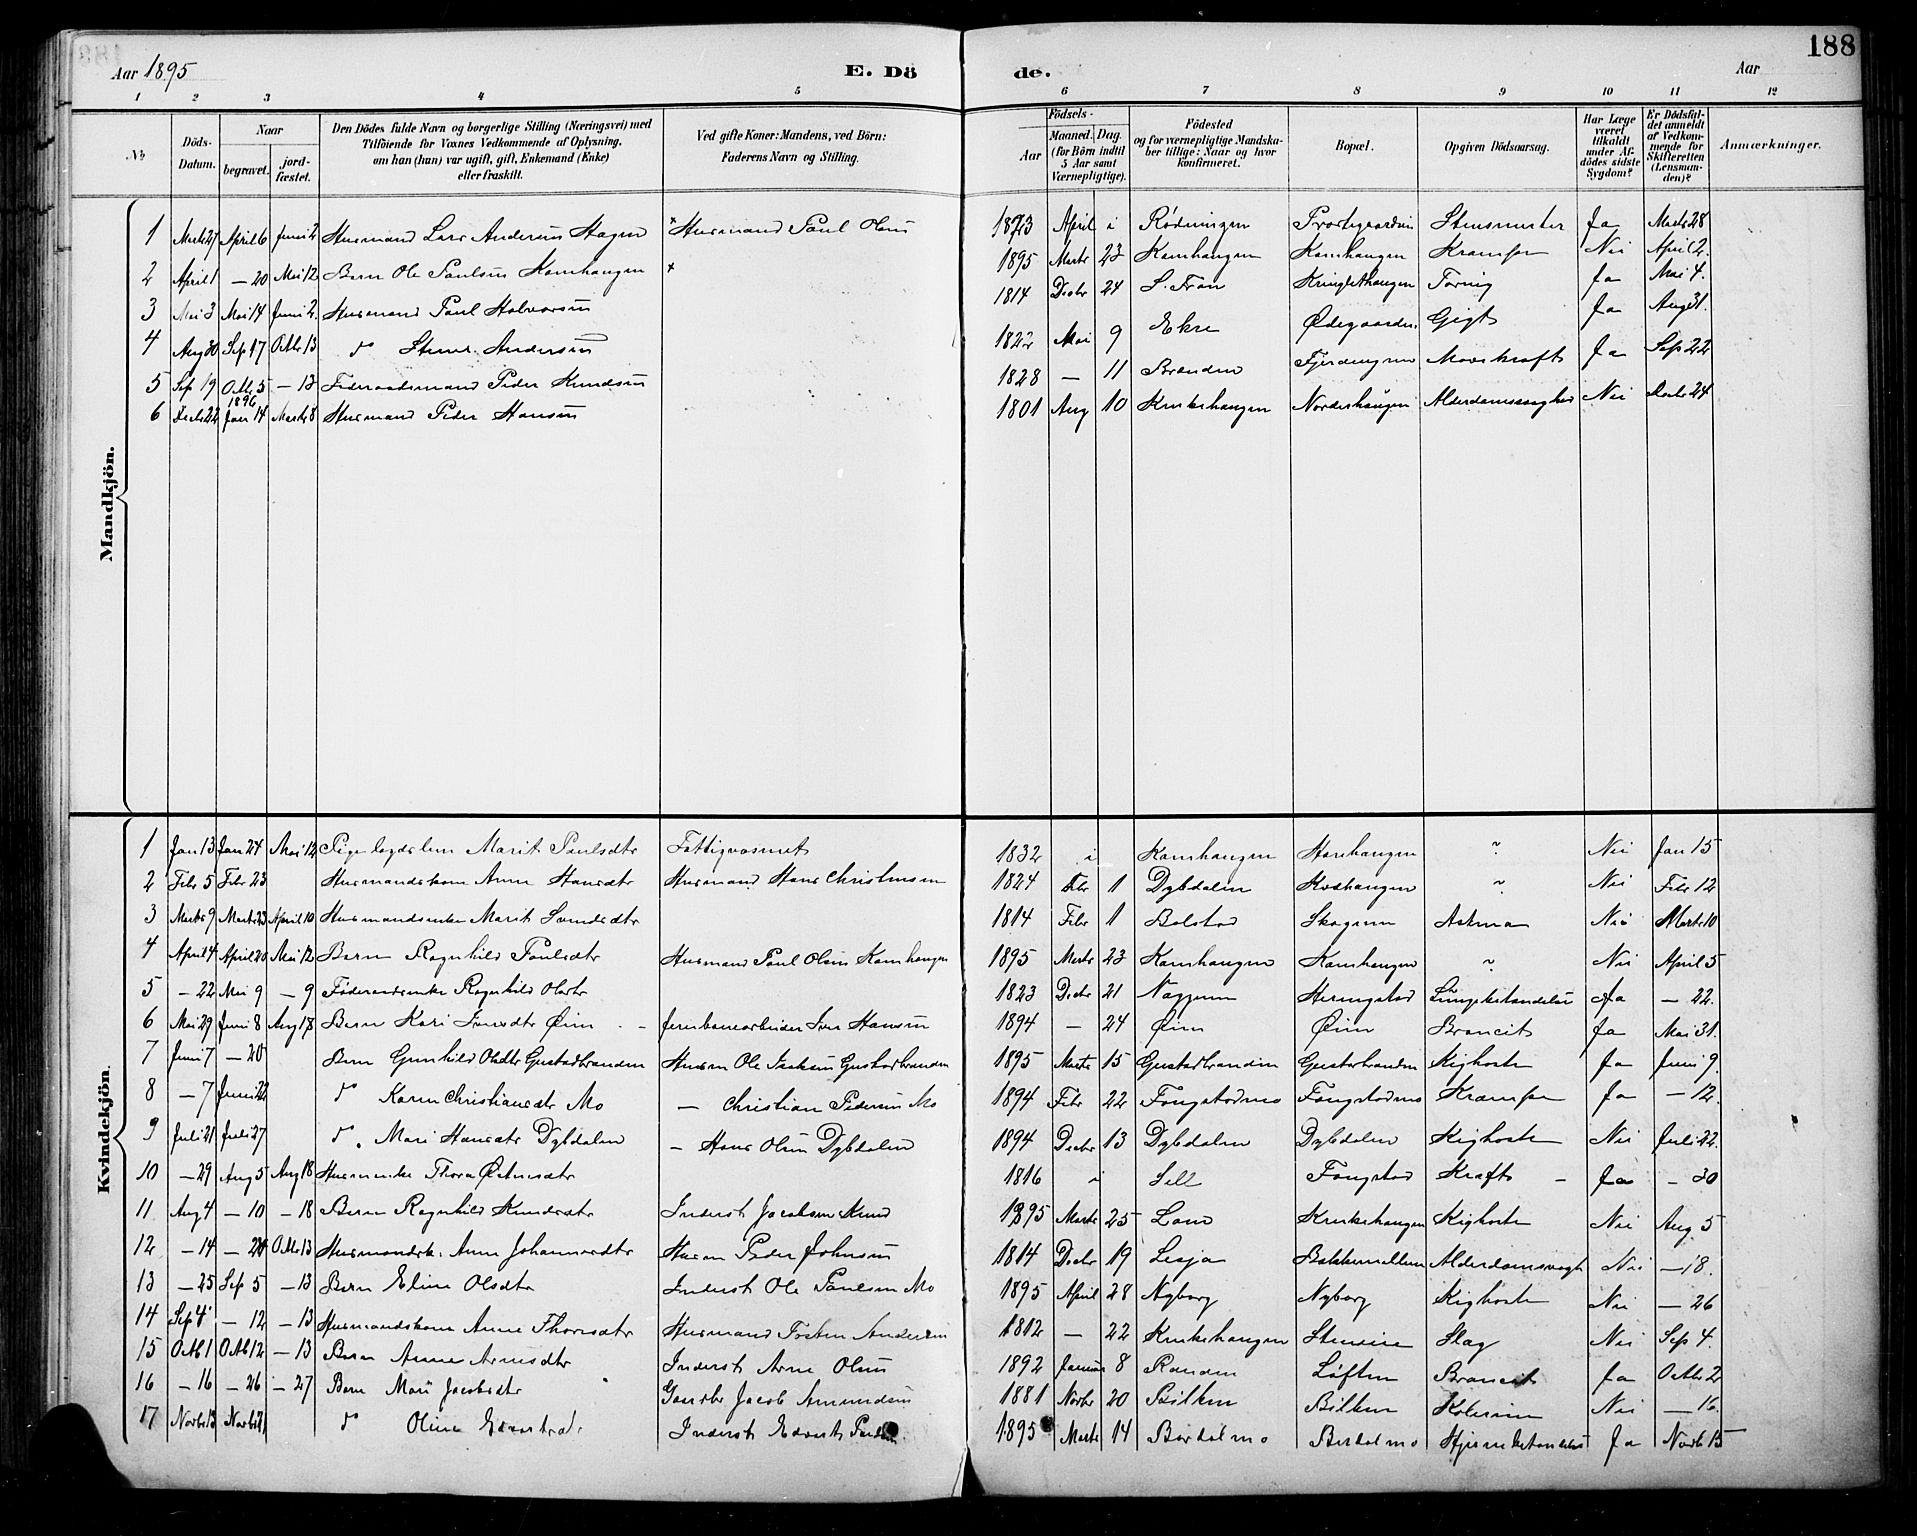 188
Aar 1895
E. Dö
de.
Aar
1 2 3 4 5 6 7 8 9 10 11 12
No
Döds-Datum.
Naar
begravet.
jord-fæstet.
Den Dödes fulde Navn og borgerlige Stilling (Næringsvei) med
Tilföiende for Voxnes Vedkommende af Oplysning,
om han (hun) var ugift, gift, Enkemand (Enke)
eller fraskilt.
Ved gifte Koner: Mandens, ved Börn:
Faderens Navn og Stilling.
Födsels-
Aar
Maaned. Dag.
(for Börn indtil
5 Aar samt
Værnepligtige).
Födested
og for værnepligtige Mandska-
ber tillige: Naar og hvor
konfirmeret.
Bopæl.
Opgiven Dödsaarsag.
Har Læge
været
tilkaldt
under Af-
dödes sidste
Sygdom?
Er Dödsfal-
det anmeldt
af Vedkom-
mende for
Skifteretten
(Lensman-
den)?
Anmærkninger.
Mandkjön.
1 Marts 27 April 6 Juni 2 Husmand Lars Andersen Hagen × Husmand Paul Olsen 1823 April i Rødningen Stensmerter Ja Marts 28
2 April 1 — 20 Mai 12 Barn Ole Paulsen Kamhaugen × 1895 Marts 23 Kamhaugen Kamhaugen Krampe Nei April 2.
3 Mai 3 Mai 14 Juni 2 Husmand Paul Halvorsen 1814 Decbr 24 S. Fron Tæring Ja Mai 4.
4 Aug 30 Sep 17 Octb 13 do Andersen 1822 Mai 9 Ekre Ødegaarden Gigt Ja Aug 31.
5 Sep 19 Octb 5 — 13 Føderaadsmand Peder Knudsen 1828 — 11 Brenden Mavekræft Ja Sep 22
6 Decbr 22 1896 Jan 14 Marts 8 Husmand Peder Hansen 1801 Aug 10 Krukehaugen Nordenhaugen Nei Decbr 24
Kvindekjön.
1 Jan 13 Jan 24 Mai 12 Pige Marit Paulsdtr Fattigvæsenet 1832 i Kamhaugen ~ Nei Jan 15
2 Febr 5 Febr 23 Husmandskone Anne Hansdtr Husmand Hans Christensen 1824 Febr 1 Dybdalen ~ Nei Febr 12
3 Marts 9 Marts 23 April 10 Husmandsenke Marit 1814 Febr 1 Bolstad Skogum Astma Nei Marts 10
4 April 4 April 20 Mai 12 Barn Ragnhild Paulsdtr Husmand Paul Olsen Kamhaugen 1895 Marts 23 Kamhaugen Kamhaugen ~ Nei April 5
5 — 22 Mai 9 — 9 Føderaadsenke Ragnhild Olsdtr 1823 Decbr 21 Heringstad Lungebetændelse Ja — 22.
6 Mai 29 Juni 8 Aug 18 Barn Kari Iversdtr Øien Jernbanearbeider Iver Hansen 1894 — 24 Øien Øien Broncit Ja Mai 31.
7 Juni 7 — 20 Barn Gunhild Olsdtr Gustadbranden Husm Ole Gustadbranden 1895 Marts 15 Gustadbranden Gustadbranden Kighoste Ja Juni 9.
8 — 7 Juni 22 do Karen Christiansdtr Mo — Christian Pedersen Mo 1894 Febr 22 Fougstadmo Fougstadmo Krampe Ja — 12.
9 Juli 21 Juli 27 do Mari Hansdtr Dybdalen — Hans Olsen Dybdalen 1894 Decbr 13 Dybdalen Dybdalen Kighoste Nei Juli 22.
10 — 29 Aug 5 Aug 18 Husmenke Thora Østensdtr 1816 i Sell Fougstad Kræft Ja — 30
11 Aug 4 — 10 — 18 Barn Ragnhild Knudsdtr Inderst Jacobsen Knud 1895 Marts 25 Land Krukehaugen Kighoste Nei Aug 5
12 — 14 — 24 Octb 13 Husmandsk. Anne Johannesdtr Husm Peder Johnsen 1814 Decbr 19 Lesja Alderdomssvagh Nei — 18.
13 — 25 Sep 5 — 13 Barn Eline Olsdtr Inderst Ole Paulsen Mo 1895 April 28 Nyborg Nyborg Kighoste Nei — 26
14 Sep 4 — 12 — 13 Husmandskone Anne Thoresdtr Husmand Andersen 1812 — 22 Krukehaugen Slag Nei Sep 4.
15 Octb 1 Octb 12 — 13 Barn Anne Arnesdtr Inderst Arne Olsen 1892 Januar 8 Randen Løften Broncit Ja Octb 2
16 — 16 — 26 — 27 Barn Mari Jacobsdtr Gaardbr Jacob Amundsen 1881 Novbr 20 Bilken Bilken Nei — 16.
17 Novb 13 Novb 21 do Oline Edvartsdtr Inderst Edvart 1895 Marts 14 Bårdalmo Bårdalmo Hjernebetændelse Ja Novb 15